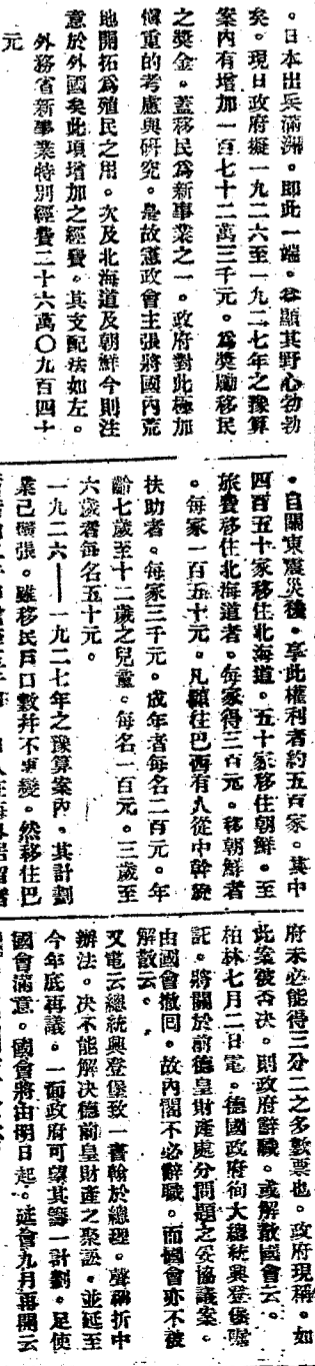 。日本出兵滿洲。即此一端。益顯其野心勃勃
矣。現日政府擬一九二六至一九二七年之豫算
案內有增加一百七十二萬三千元。爲獎勵移民
之獎金。蓋移民爲新事業之一。政府對此極加
愼重的考慮與硏究。是故憲政會主張將國內荒
地開拓爲殖民之用。次及北海道及朝鮮今則注
意於外國矣此項增加之經費。其支配法如左。
外務省新事業特別經費二十六萬〇九百四十
元
。自關東震災後。享此權利者約五百家。其中
四百五十家移住北海道。五十家移住朝鮮。至
旅費移住北海道者。每家得三百元。移朝鮮者
。每家一百五十元。凡願往巴西有人從中幹旋
扶助者。每家三千元。成年者每名二百元。年
齡七歲至十二歲之兒童。每名一百元。三歲至
六歲者每名五十元。
一九二六——一九二七年之豫算案內。其計劃
業已擴張。雖移民戶口數幷不更變。然移住巴
府未必能得三分二之多數票也。政府現稱。如
此案被否決。則政府辭職。或解散國會云。
柏林七月二日電。德國政府徇大總統興登堡囑
託。將關於前德皇財產處分問題之妥協議案。
由國會撤回。故內閣不必辭職。而國會亦不被
解散云。
又電云總統興登堡致一書翰於總理。聲稱折中
辦法。決不能解決德前皇財產之聚訟。並延至
今年底再議。一面政府可望其籌一計劃。足使
國會滿意。國會將由明日起。延會九月再開云